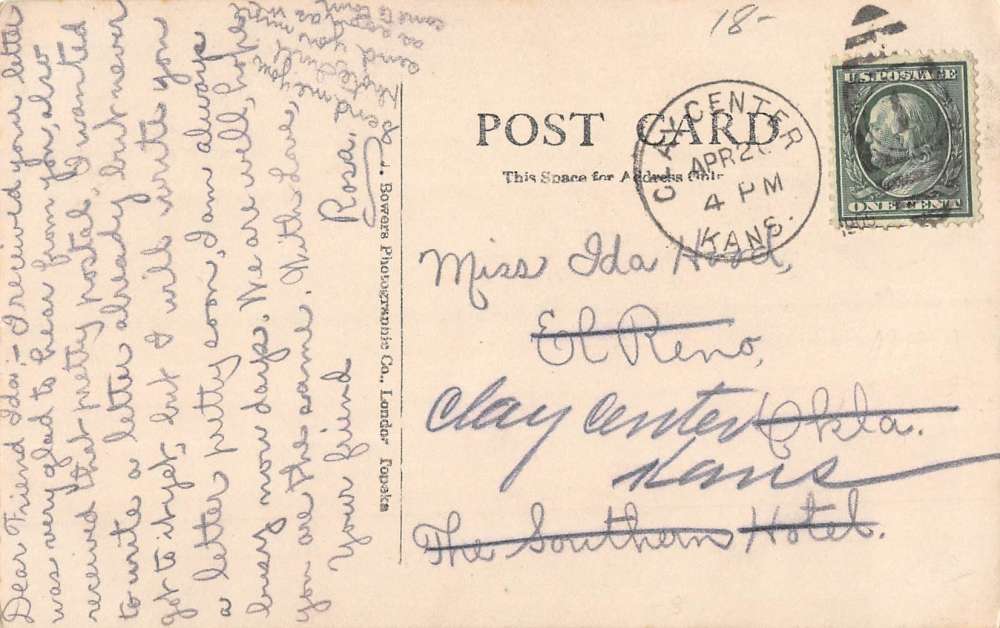 18-
POST CARD
This Space for Address Only
CLAY CENTER
APR 2
4 PM
KANS.
U.S. POSTAGE
ONE CENT
Miss Ida
El Reno,
Clay Center Okla.
Kans
The Southern Hotel.
Bowers Photographic Co., London Topeka
Dear Friend Ida:- I received your letter
was very glad to hear from you, also
received that pretty postal. I wanted
to write a letter already but never
got to it yet, but I will write you
a letter pretty soon, I am always
busy now days. We are well, hope
you are the same. With Love,
Your friend
Rosa.
Send me your
photo I will
send you mine
as soon as
come to town